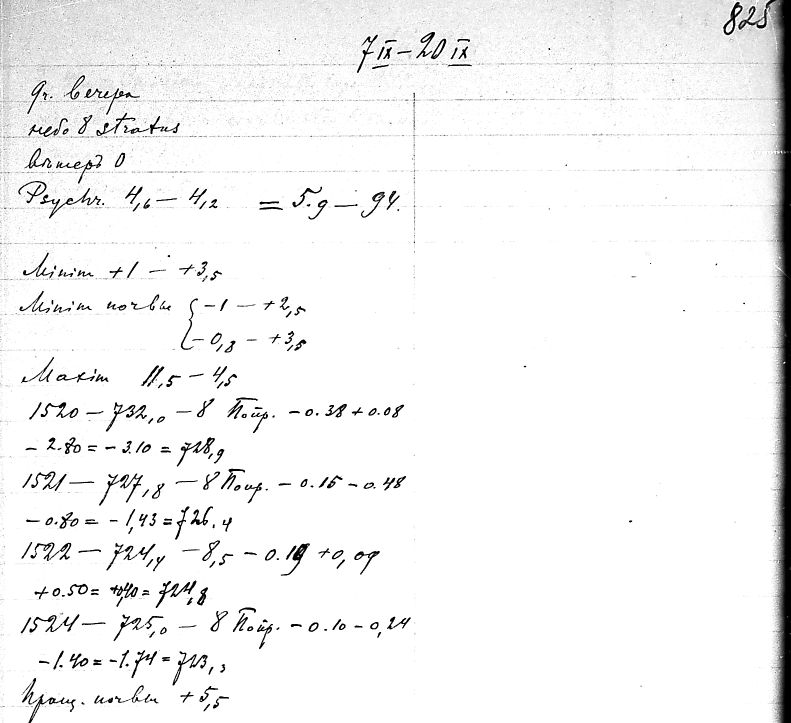 825
7 IX – 20 IX
9 ч. вечера
небо 8 stratus
вѣтеръ 0
Psychr. 4,6 – 4,2 = 5.9 – 94.
Minim +1 – +3,5
Minim почвы { –1 – +2,5
– 0,8 – +3,5
Maxim 11,5 – 4,5
1520 – 732,0 – 8 Попр. – 0.38 + 0.08
– 2.80 = – 3.10 = 728,9
1521 – 727,8 – 8 Попр. – 0.15 – 0.48
– 0.80 = – 1,43 = 726.4
1522 – 724,4 – 8,5 – 0.19 + 0,09
+ 0.50 = +0,40 = 724,8
1524 – 725,0 – 8 Попр. – 0.10 – 0,24
– 1.40 = – 1.74 = 723,3
почвы + 5,5